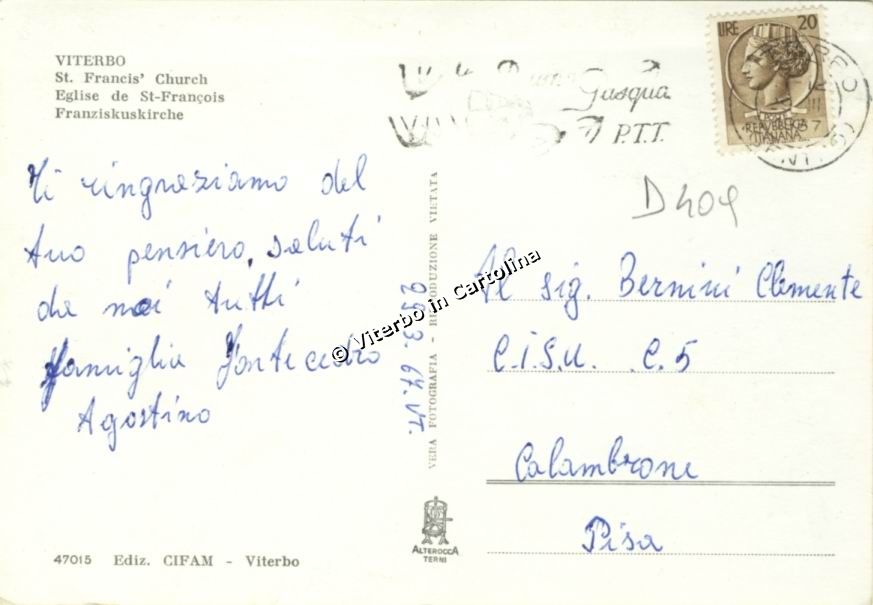 VITERBO
St. Francis' Church
Eglise de St-François
Franziskuskirche
Ti ringraziamo del
tuo pensiero, saluti
da noi tutti
famiglia Fontecedro
Agostino
25.3.67. VT.
VERA FOTOGRAFIA - RIPRODUZIONE VIETATA
47015 Ediz. CIFAM - Viterbo
ALTEROCCA
TERNI
LIRE 20
REPUBBLICA
ITALIANA
Buona
Pasqua
P.T.T.
D409
Al sig. Bernini Clemente
C.I.S.U. C.5
Calambrone
Pisa
© Viterbo in Cartolina